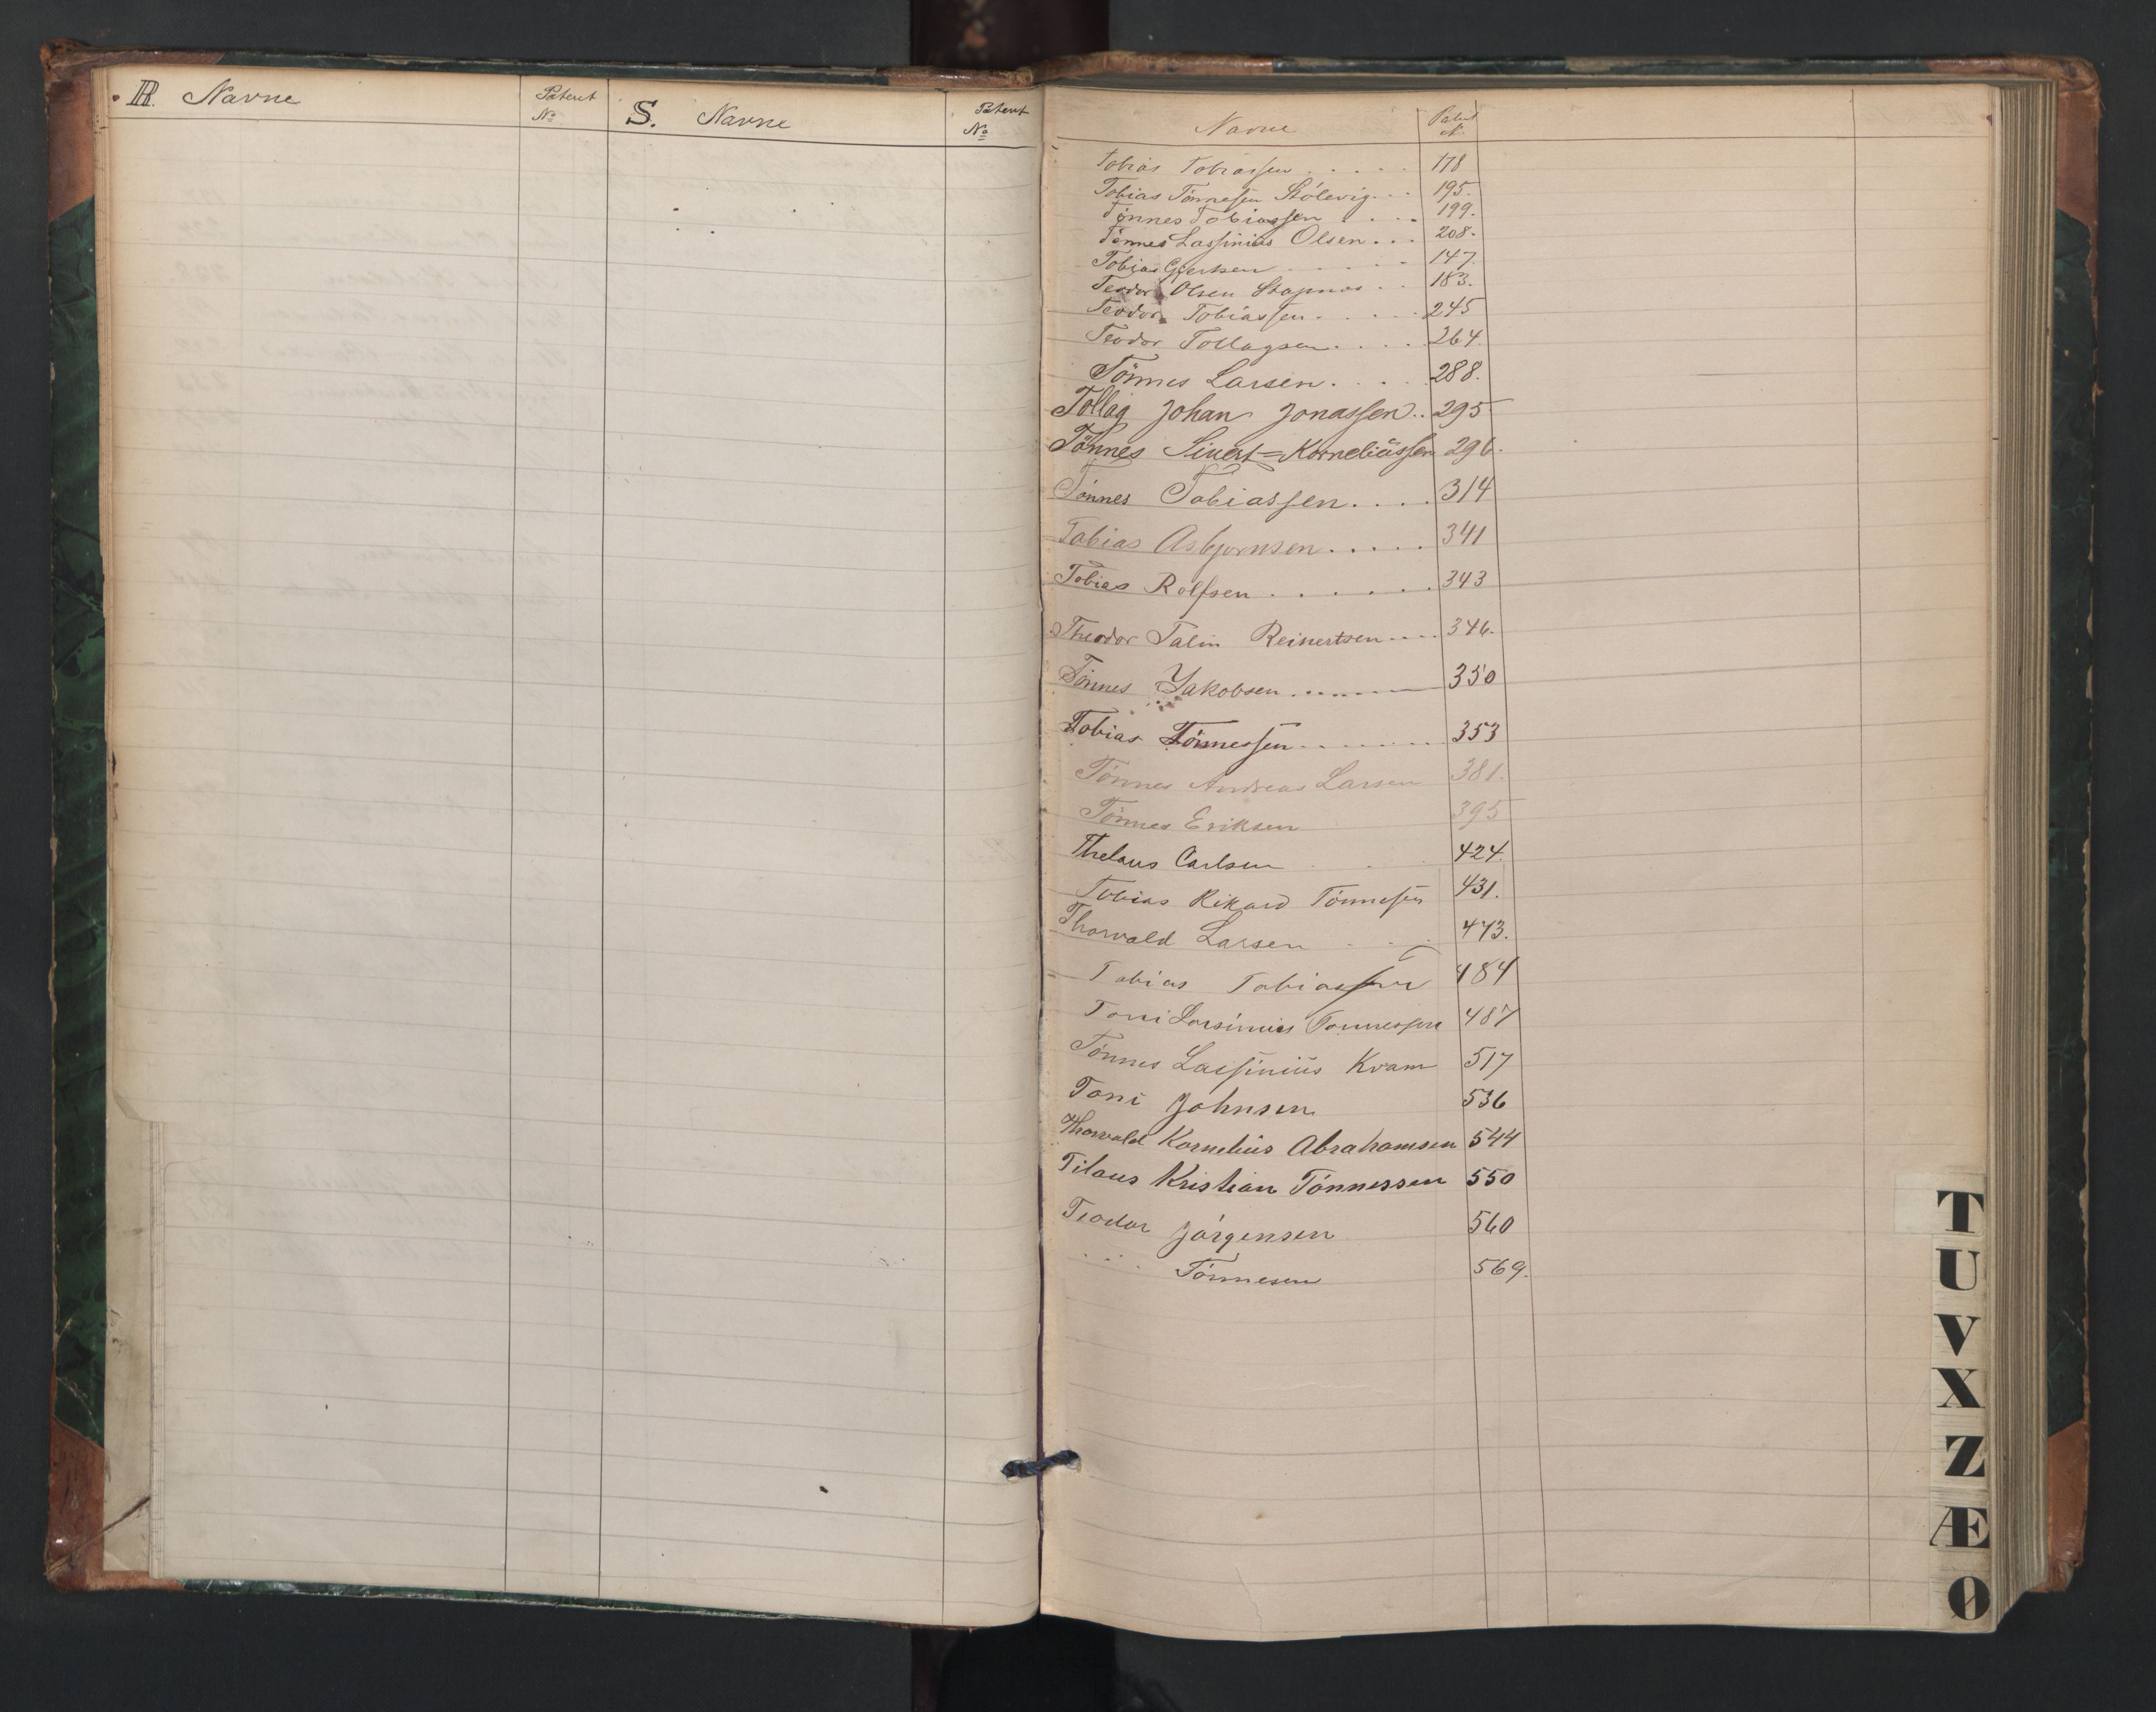 R. Navne
Patent
No
S. Navne
Patent
No
Navne
Patent
No
Tobias Tobiassen..... 178
Tobias Tönnesen Stölevig... 195.
Tönnes Tobiassen.... 199.
Tönnes Lassinius Olsen... 208.
Tobias Gjertsen..... 147.
Teodor Olsen Stapnæs.. 183.
Teodor Tobiassen..... 245
Teodor Tollagsen.... 264.
Tönnes Larsen.... 288.
Tollag Johan Jonassen.. 295
Tönnes Sivert=Korneliussen 296.
Tönnes Tobiassen.... 314
Tobias Asbjornsen..... 341
Tobias Rolfsen....... 343
Theodor Talin Reinertsen.... 346.
Tönnes Jakobsen........ 350
Tobias Tönnessen........ 353
Tönnes Andreas Larsen 381.
Tönnes Eriksen 395
Thelaus Carlsen 424.
Tobias Rikard Tönnesen 431.
Thorvald Larsen... 473.
Tobias Tobiassen 484
Toni Lassinius Tonnessen 487
Tönnes Lassinius Kvam 517
Toni Johnsen 536
Thorvald Kornelius Abrahamsen 544
Tilaus Kristian Tönnessen 550
Teodor Jörgensen 560
.... Tönnesen 569.
T
U
V
X
Z
Æ
Ø